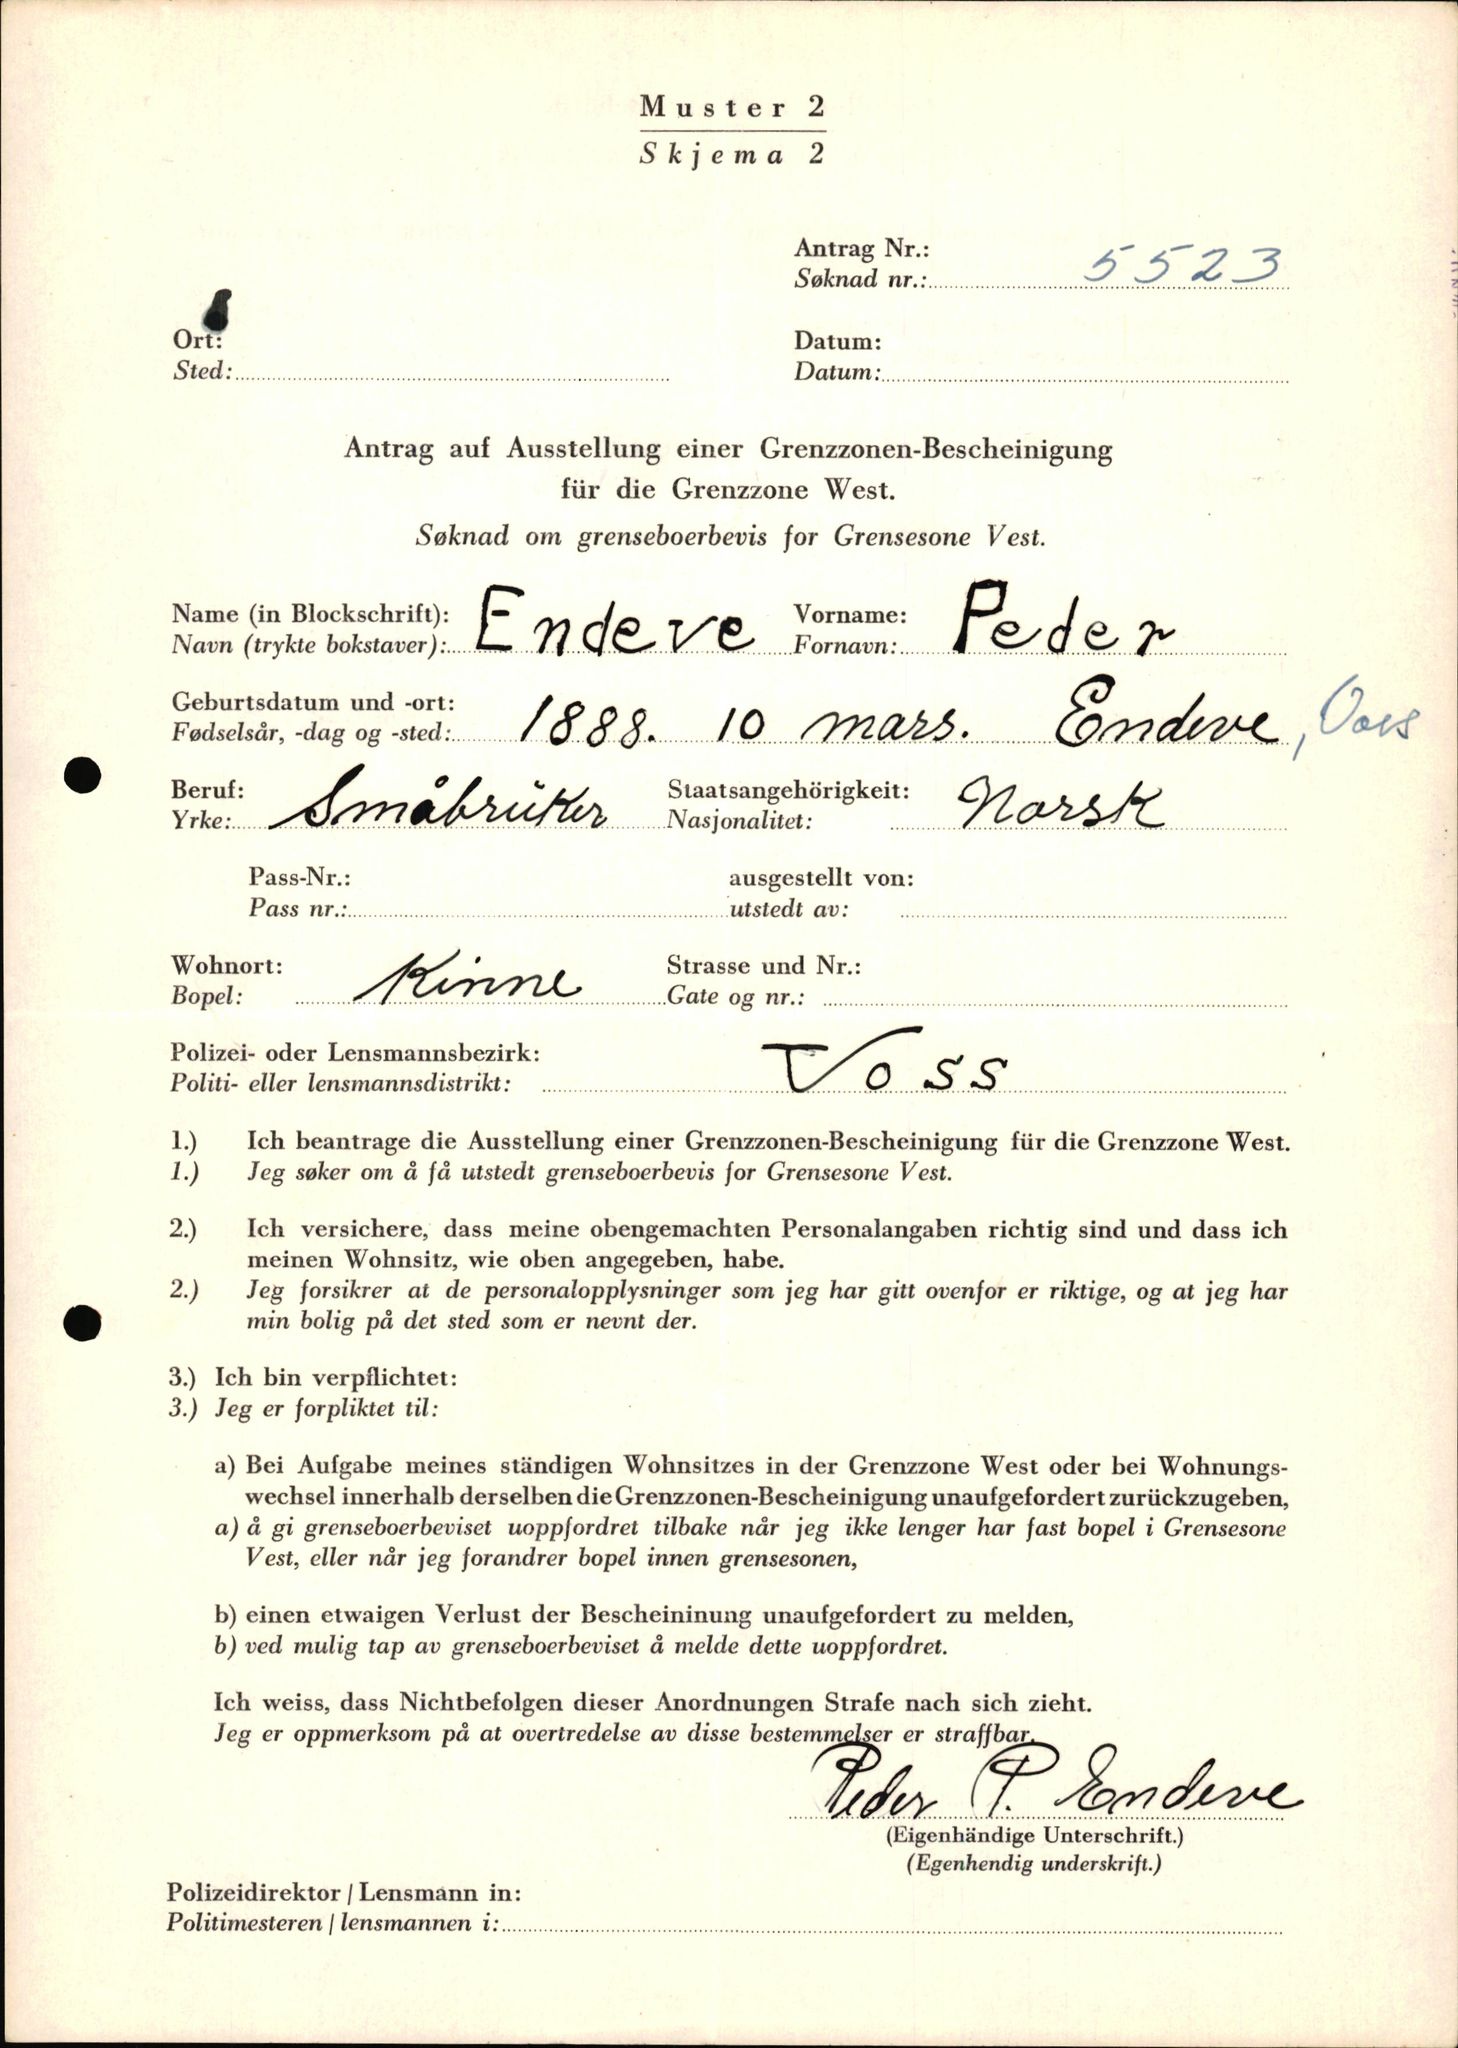 Muster 2
Skjema 2
Antrag Nr.:
Søknad nr.: 5523
Ort:
Sted:
Datum:
Datum:
Antrag auf Ausstellung einer Grenzzonen-Bescheinigung
für die Grenzzone West.
Søknad om grenseboerbevis for Grensesone Vest.
Name (in Blockschrift): Vorname:
Navn (trykte bokstaver): Endeve Fornavn: Peder
Geburtsdatum und -ort:
Fødselsår, -dag og -sted: 1888. 10 mars. Endeve, Voss
Beruf: Staatsangehörigkeit:
Yrke: Småbrüker Nasjonalitet: Norsk
Pass-Nr.: ausgestellt von:
Pass nr.: utstedt av:
Wohnort: Strasse und Nr.:
Bopel: Kinne Gate og nr.:
Polizei- oder Lensmannsbezirk:
Politi- eller lensmannsdistrikt: Voss
1.) Ich beantrage die Ausstellung einer Grenzzonen-Bescheinigung für die Grenzzone West.
1.) Jeg søker om å få utstedt grenseboerbevis for Grensesone Vest.
2.) Ich versichere, dass meine obengemachten Personalangaben richtig sind und dass ich
meinen Wohnsitz, wie oben angegeben, habe.
2.) Jeg forsikrer at de personalopplysninger som jeg har gitt ovenfor er riktige, og at jeg har
min bolig på det sted som er nevnt der.
3.) Ich bin verpflichtet:
3.) Jeg er forpliktet til:
a) Bei Aufgabe meines ständigen Wohnsitzes in der Grenzzone West oder bei Wohnungs-
wechsel innerhalb derselben die Grenzzonen-Bescheinigung unaufgefordert zurückzugeben,
a) å gi grenseboerbeviset uoppfordret tilbake når jeg ikke lenger har fast bopel i Grensesone
Vest, eller når jeg forandrer bopel innen grensesonen,
b) einen etwaigen Verlust der Bescheininung unaufgefordert zu melden,
b) ved mulig tap av grenseboerbeviset å melde dette uoppfordret.
Ich weiss, dass Nichtbefolgen dieser Anordnungen Strafe nach sich zieht.
Jeg er oppmerksom på at overtredelse av disse bestemmelser er straffbar.
Peder P. Endeve
(Eigenhändige Unterschrift.)
(Egenhendig underskrift.)
Polizeidirektor / Lensmann in:
Politimesteren / lensmannen i: